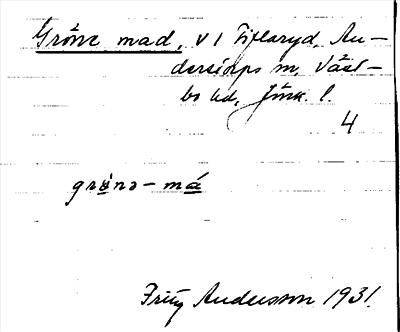 Gröne mad, v 1 Tiflaryd, An-
derstorps sn, Väst-
bo hd, Jönk. l.
4
grønə-má
Fritz Andersson 1931.